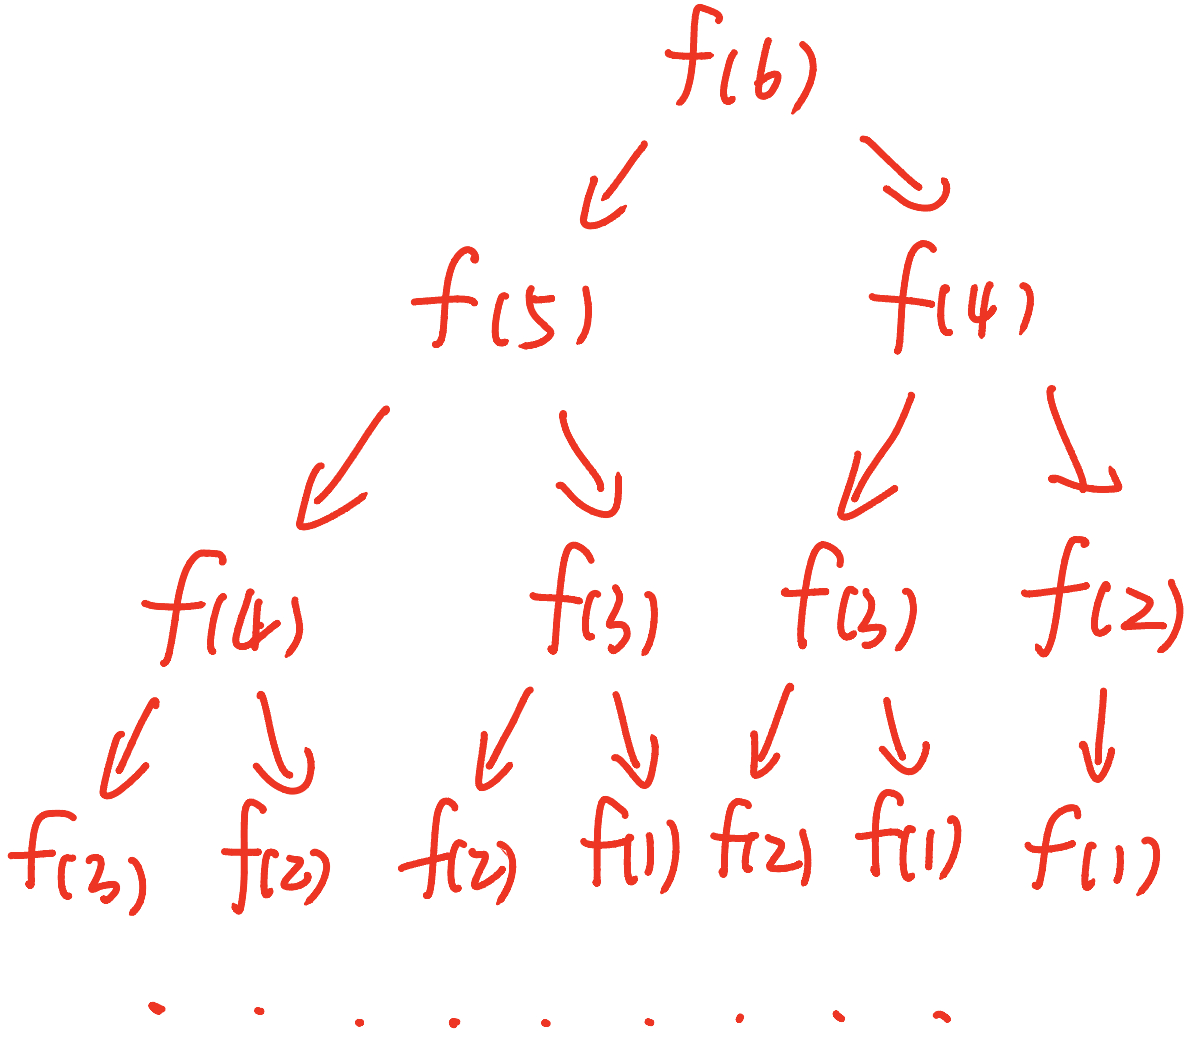 f(6)
f(5) f(4)
f(4) f(3) f(3) f(2)
f(3) f(2) f(2) f(1) f(2) f(1) f(1)
. . . . . . . . .